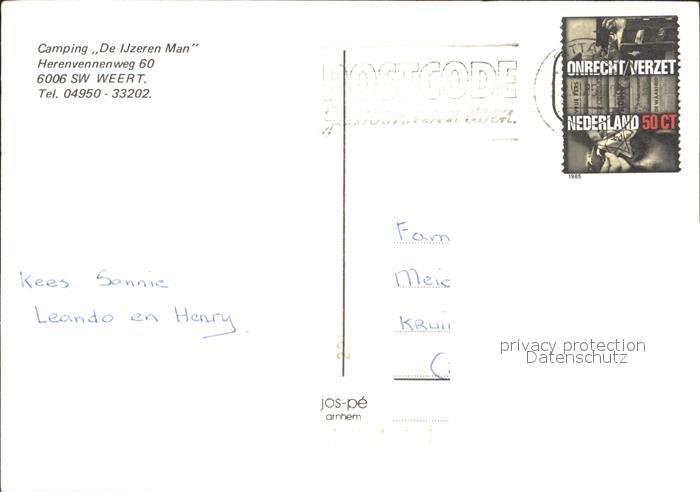 Camping ,,De IJzeren Man"
Herenvennenweg 60
6006 SW WEERT.
Tel. 04950 - 33202.
POSTCODE
ONRECHT/VERZET
NEDERLAND 50 CT
1985
Fam
Kees Sannie
Leando en Henry.
privacy protection
Datenschutz
jos-pé
arnhem